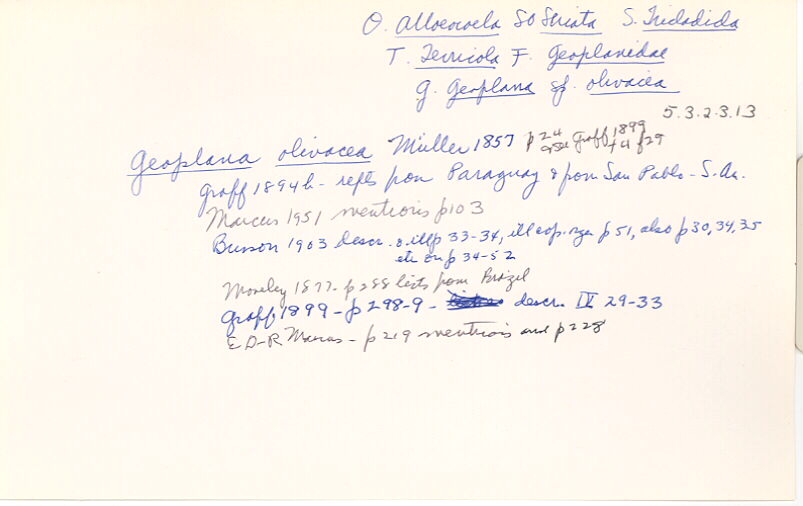 O. Alloeocoela SO Seriata S. Tricladida
T. Terricola F. Geoplanidae
g. Geoplana sp. olivacea
5.3.2.3.13
Geoplana olivacea Müller 1857 p24 Graff 1899 T4 f29
Graff 1894b - repts from Paraguay & from San Pablo - S. Am.
Marcus 1951 mentions p103
Busson 1903 descr. & ill p 33-34, ill cop. rgn p51, also p30, 34, 35
etc on p34-52
Moseley 1877 - p288 lists from Brazil
Graff 1899 - p298-9 - descr. IV 29-33
E D-R Marcus - p219 mentions and p228